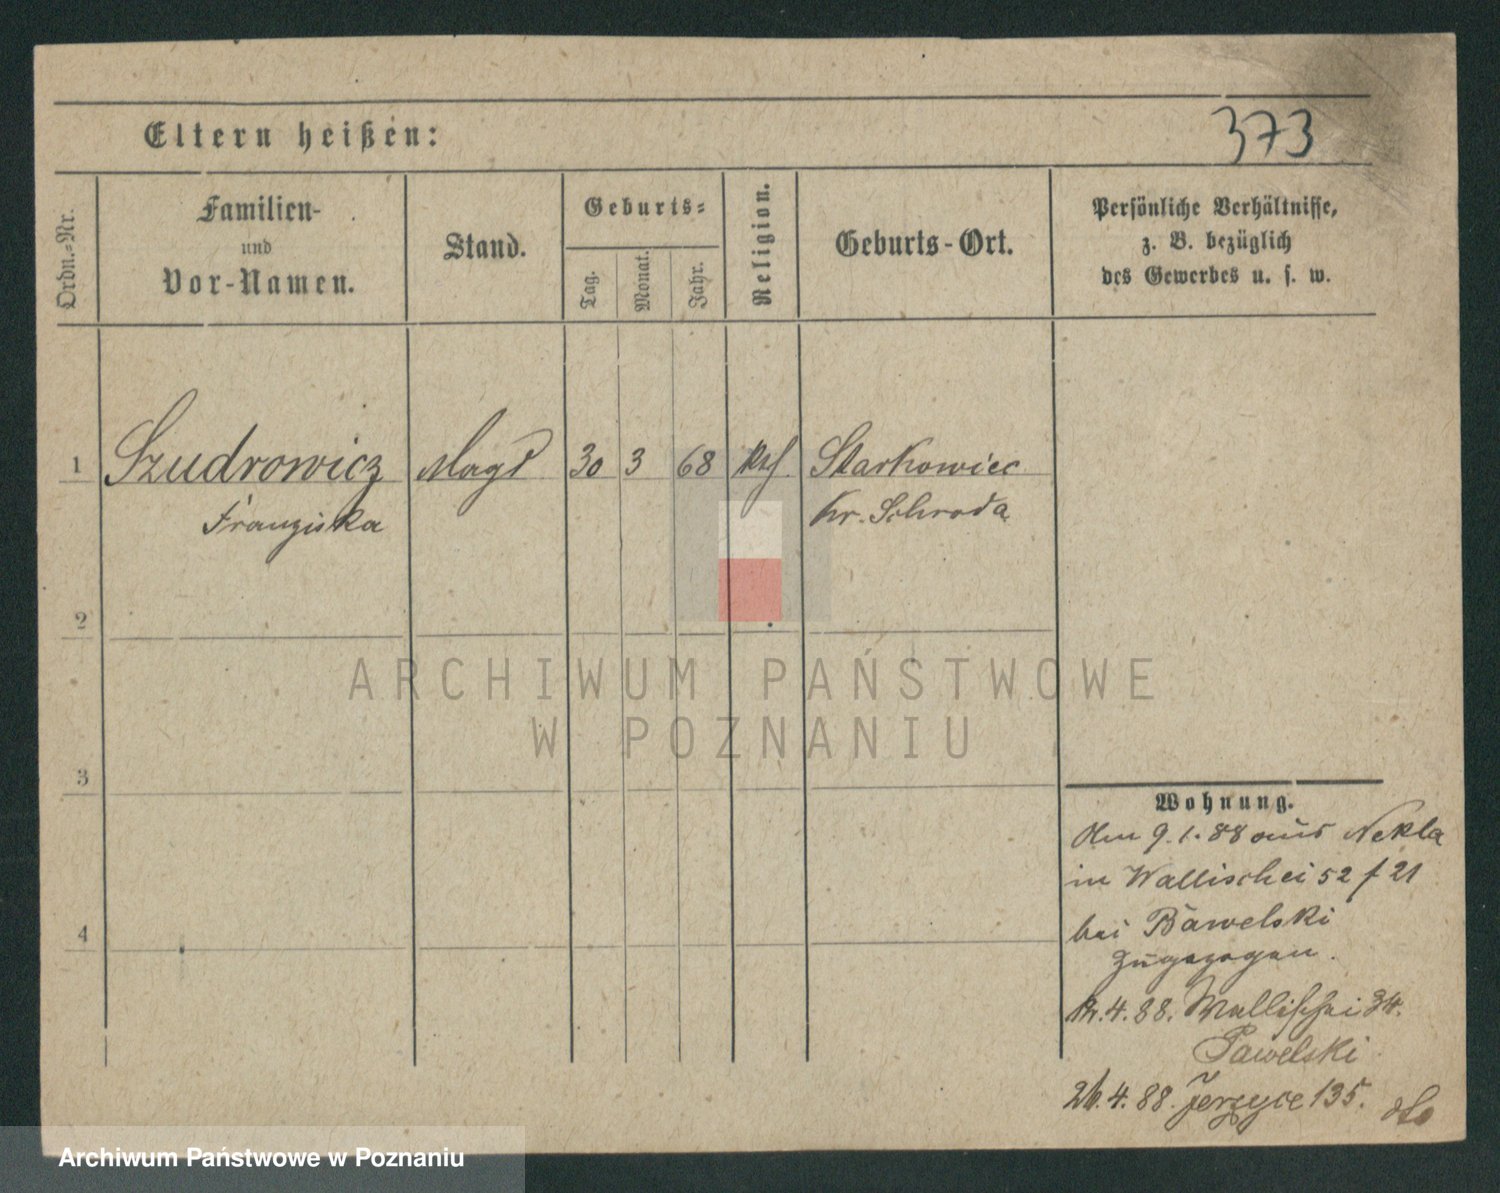 Eltern heißen:
373
Ordn.-Nr.
Familien-
und
Vor-Namen.
Stand.
Geburts-
Tag.
Monat.
Jahr.
Religion.
Geburts-Ort.
Persönliche Verhältnisse,
z. B. bezüglich
des Gewerbes u. s. w.
1 Szudrowicz Magd 30 3 68 Starkowiec
Franziska Kr. Schroda
2
3
4
Wohnung.
Am 9.1.88 aus Nekla
in Wallischei 52 f 21
bei Bawelski
zugezogen.
4.88. Wallischei 34.
Pawelski
26.4.88. Jerzyce 135. dto
ARCHIWUM PAŃSTWOWE
W POZNANIU
Archiwum Państwowe w Poznaniu